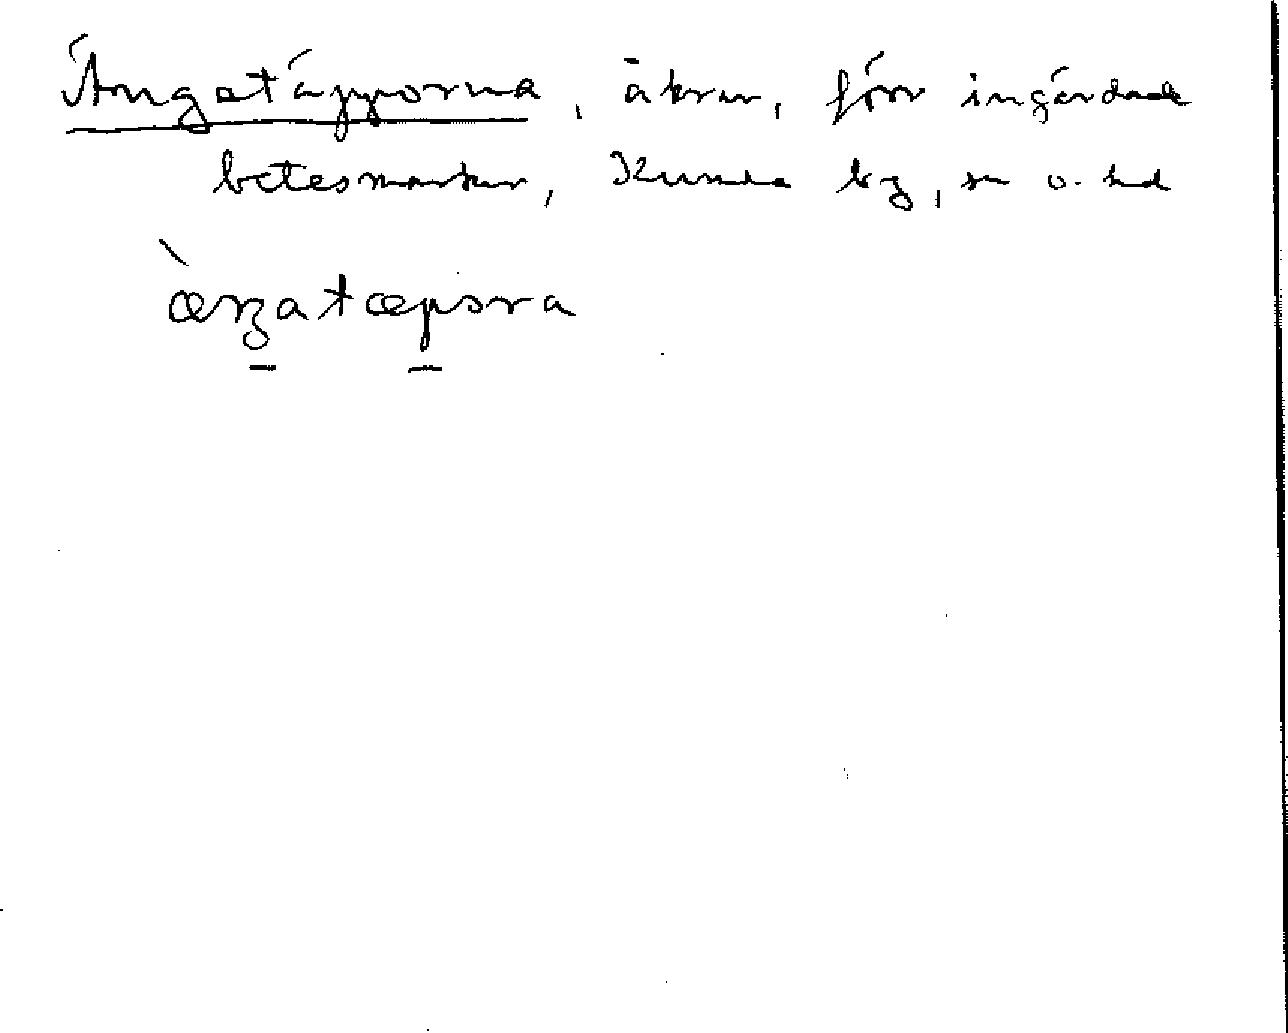 Ängatäpporna, åkrar, förr ingärdade
betesmarker, Kumla by, sn o. hd
æŋatæpora